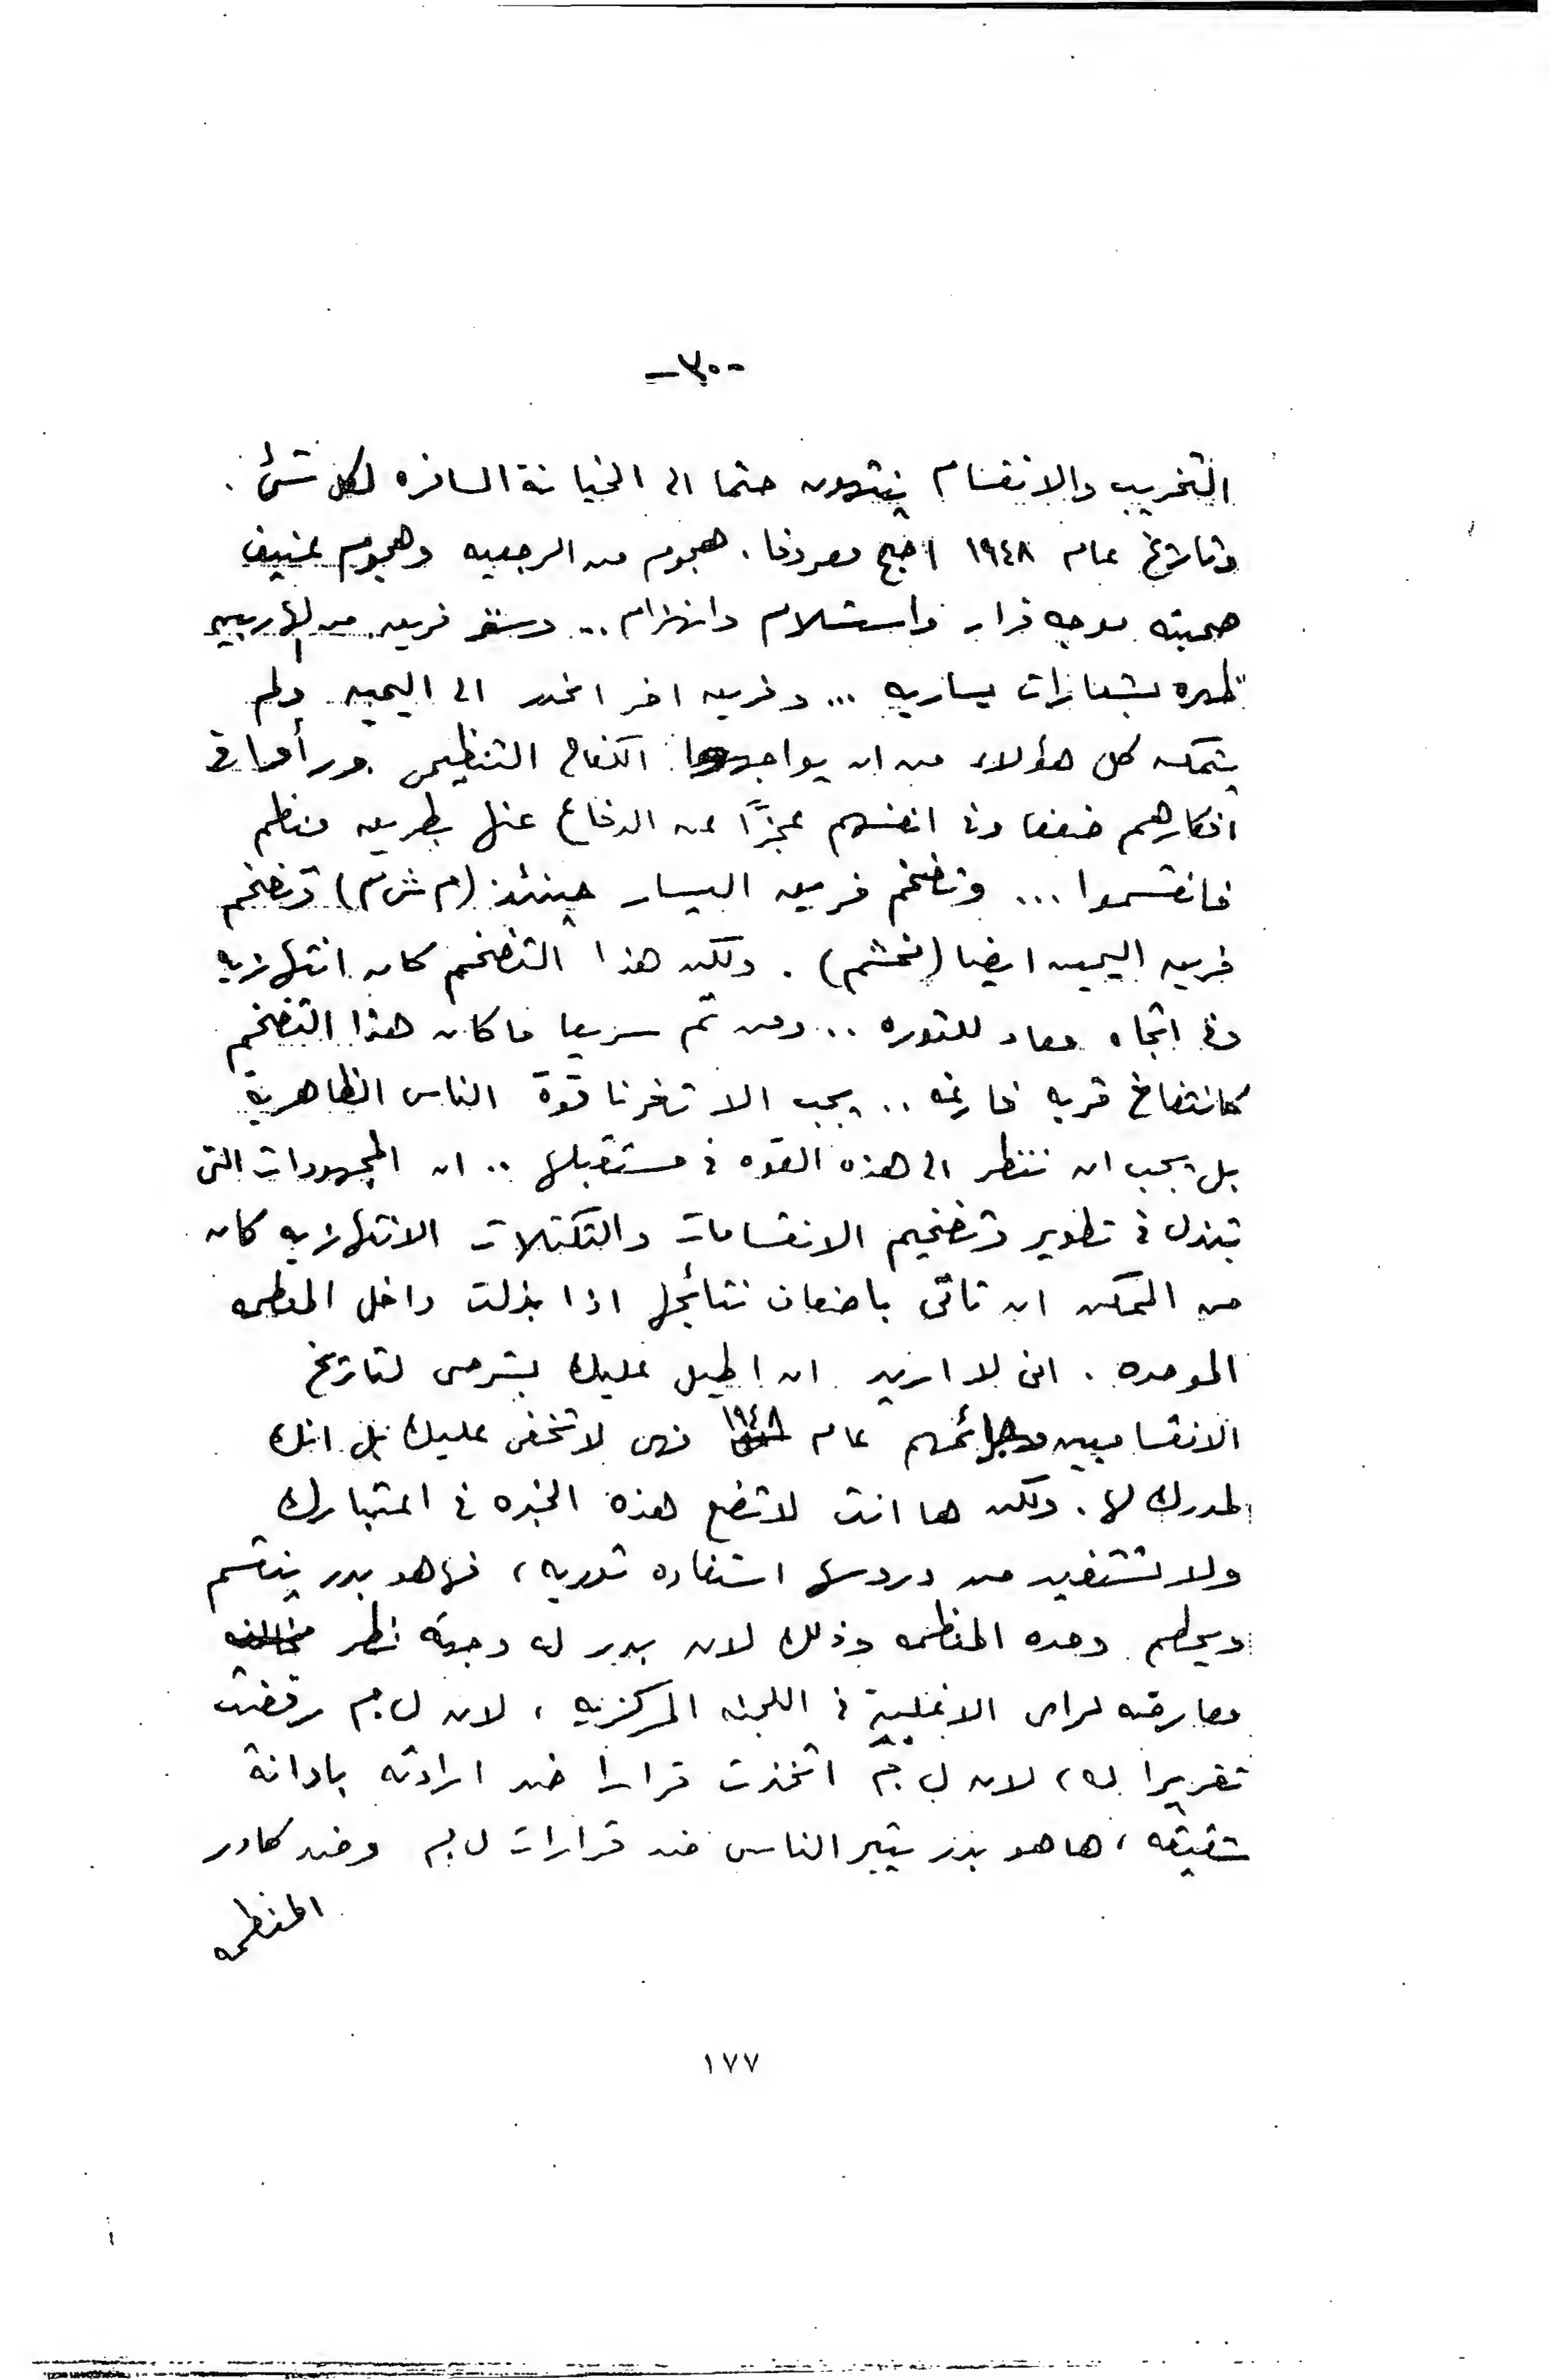 -٣٠-
التخريب والانقسام ينتهون حتما الى الخيانة السافره لكل شئ .
وتاريخ عام ١٩٤٨ اصبح معروفا . هجوم من الرجعيه وهجوم عنيف
صحبته موجه فرار واستسلام وانهزام ... وستر فريق من الهاربين
ظهره بشعارات يساريه ... وفريق اخر انحدر الى اليمين ولم
يتمكن كل هؤلاء من ان يواجهوا الكفاح التنظيمى . ورأوا فى
افكارهم ضعفا وفى انفسهم عجزًا عن الدفاع عنها بطريق منظم
فانقسموا ... وتضخم فريق اليسار حينئذ (م ش م) وتضخم
فريق اليمين ايضا (نحشم) . ولكن هذا التضخم كان انتهازيه
وفى اتجاه معاد للثوره .. ومن ثم سريعا ما كان هذا التضخم
كانتفاخ قربه فارغه .. يجب الا تغرنا قوة الناس الظاهرية
بل يجب ان ننظر الى هذه القوه فى مستقبلها .. ان المجهودات التى
تبذل فى تطوير وتضخيم الانقسامات والتكتلات الانتهازيه كان
من الممكن ان تاتى باضعاف نتائجها اذا بذلت داخل المنظمه
الموحده . انى لا اريد ان اطيل عليك بشرحى لتاريخ
الانقساميين وجرائمهم عام ١٩٤٨ فهى لا تخفى عليك بل انك
لمدرك لها . ولكن ها انت لا تضع هذه الخبره فى اعتبارك
ولا تستفيد من دروسها استفاده ثوريه ، فها هو بدر ينقسم
ويحطم وحده المنظمه وذلك لان بدر له وجهة نظر مخالفه
معارضه لراى الاغلبية فى اللجنه المركزيه ، لان ل م رفضت
تقريرا له ، لان ل م اتخذت قرارا ضد ارادته بادانة
شقيقه ، ها هو بدر يثير الناس ضد قرارات ل م وضد كادر
المنظمه
١٧٧